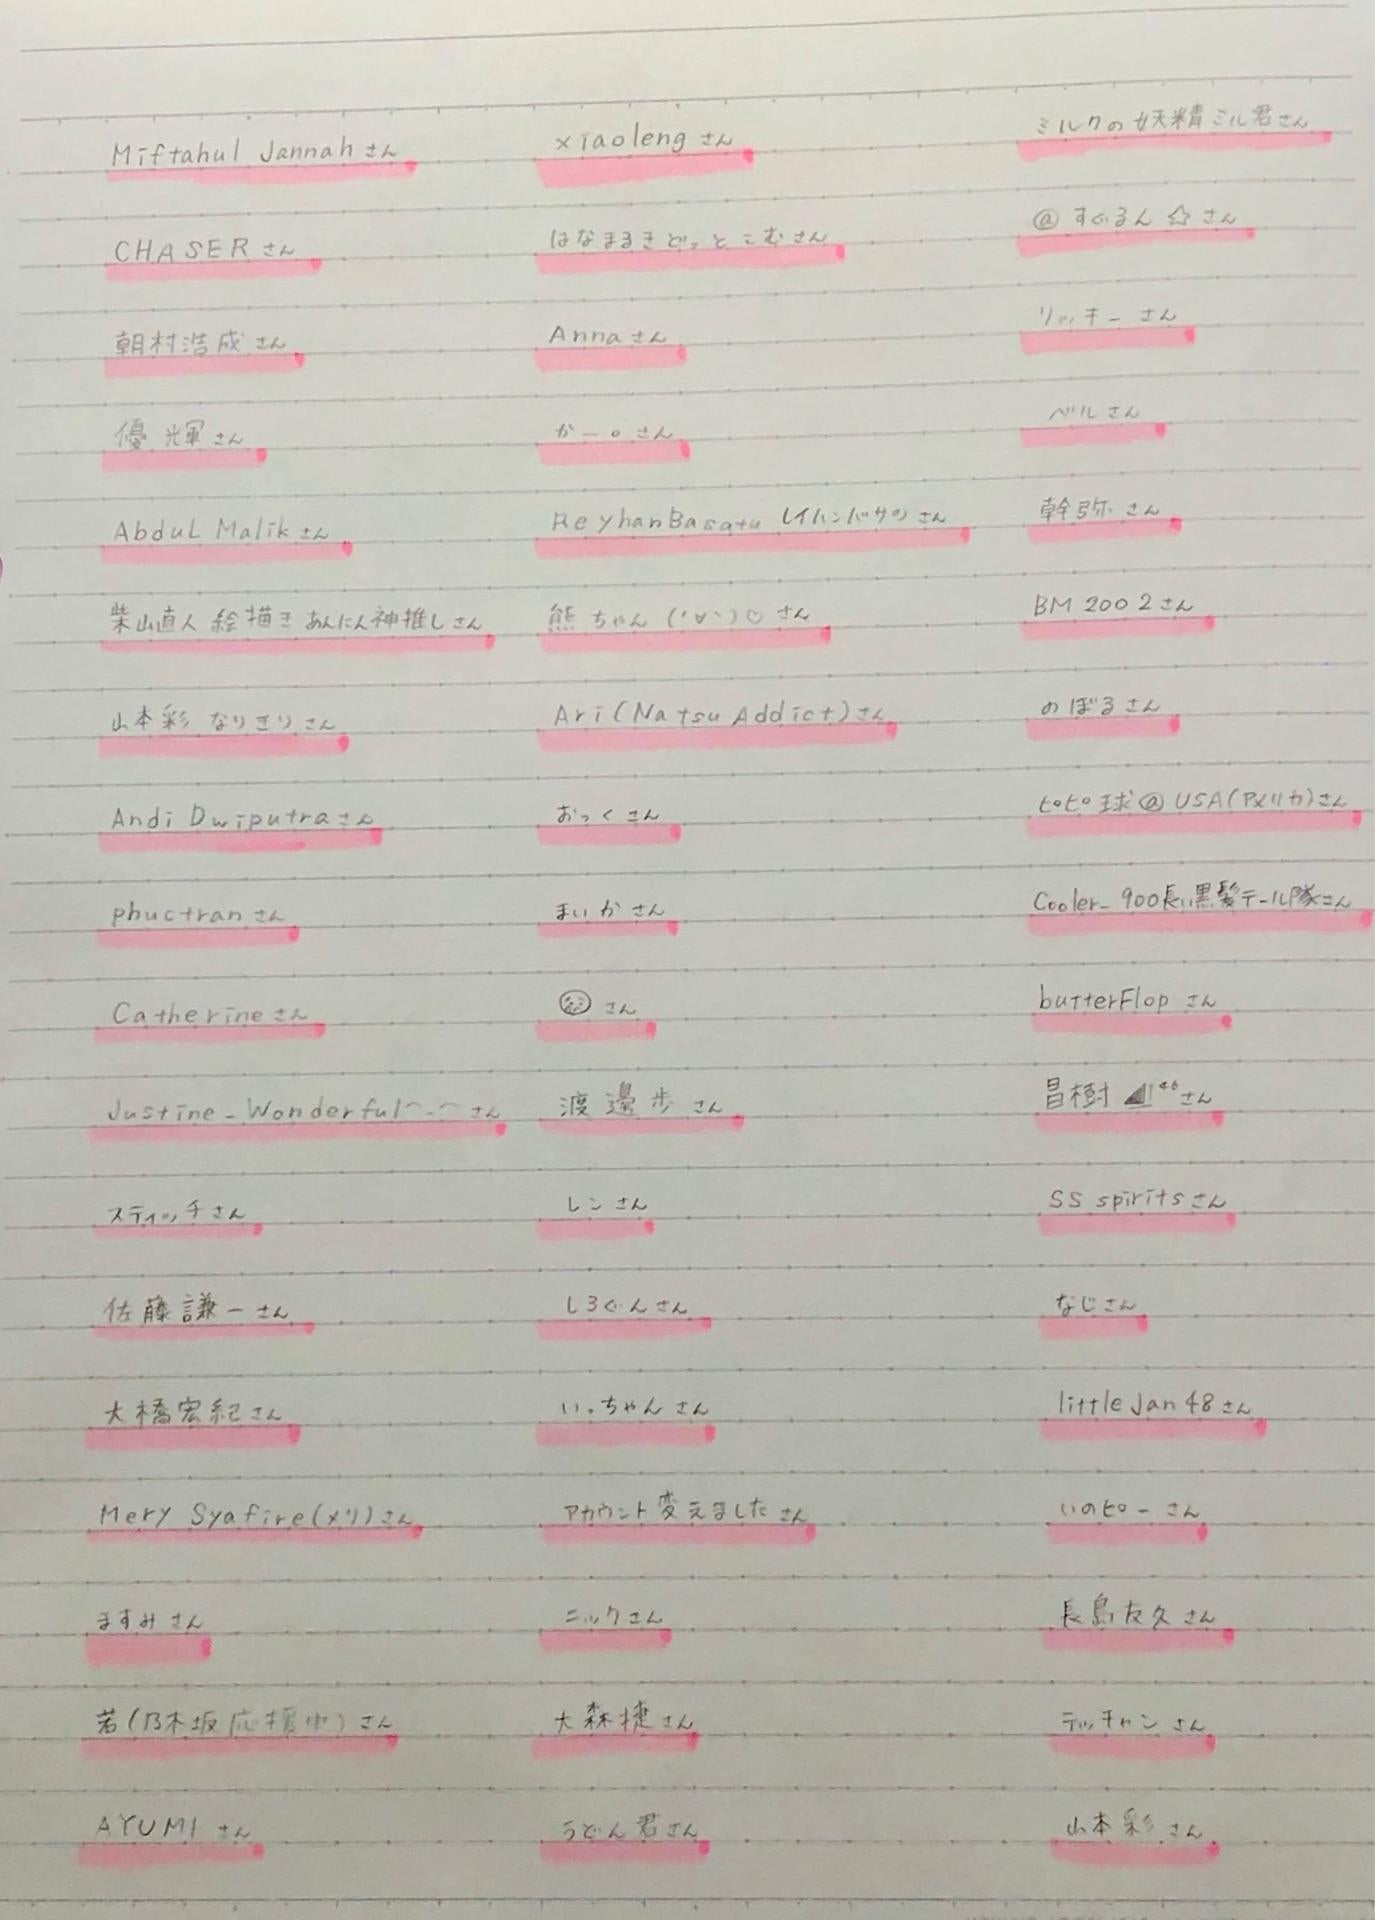 Miftahul Jannahさん
CHASERさん
朝村浩成さん
優輝さん
Abdul Malikさん
柴山直人 絵描き あんにん神推しさん
山本彩 なりきりさん
Andi Dwiputraさん
phuctranさん
Catherineさん
Justine_Wonderful^-^さん
スティッチさん
佐藤謙一さん
大橋宏紀さん
Mery Syafire(メリ)さん
ますみさん
若(乃木坂応援中)さん
AYUMIさん
xiaolengさん
はなまるきどっとこむさん
Annaさん
かー。さん
ReyhanBasatu レイハンバサツさん
熊ちゃん('∀`)♡さん
Ari(Natsu Addict)さん
おっくさん
まいかさん
さん
渡邊歩さん
レンさん
しろぐんさん
いっちゃんさん
アカウント変えましたさん
ニックさん
大森捷さん
うどん君さん
ミルクの妖精ミル君さん
@すぐるん☆さん
リッキーさん
ベルさん
幹弥さん
BM2002さん
のぼるさん
ピピ球@USA(アメリカ)さん
Cooler_900長い黒髪テール隊さん
butterFlopさん
昌樹◢|⁴⁶さん
SS spiritsさん
なじさん
little Jan 48さん
いのピーさん
長島友久さん
テッチャンさん
山本彩さん